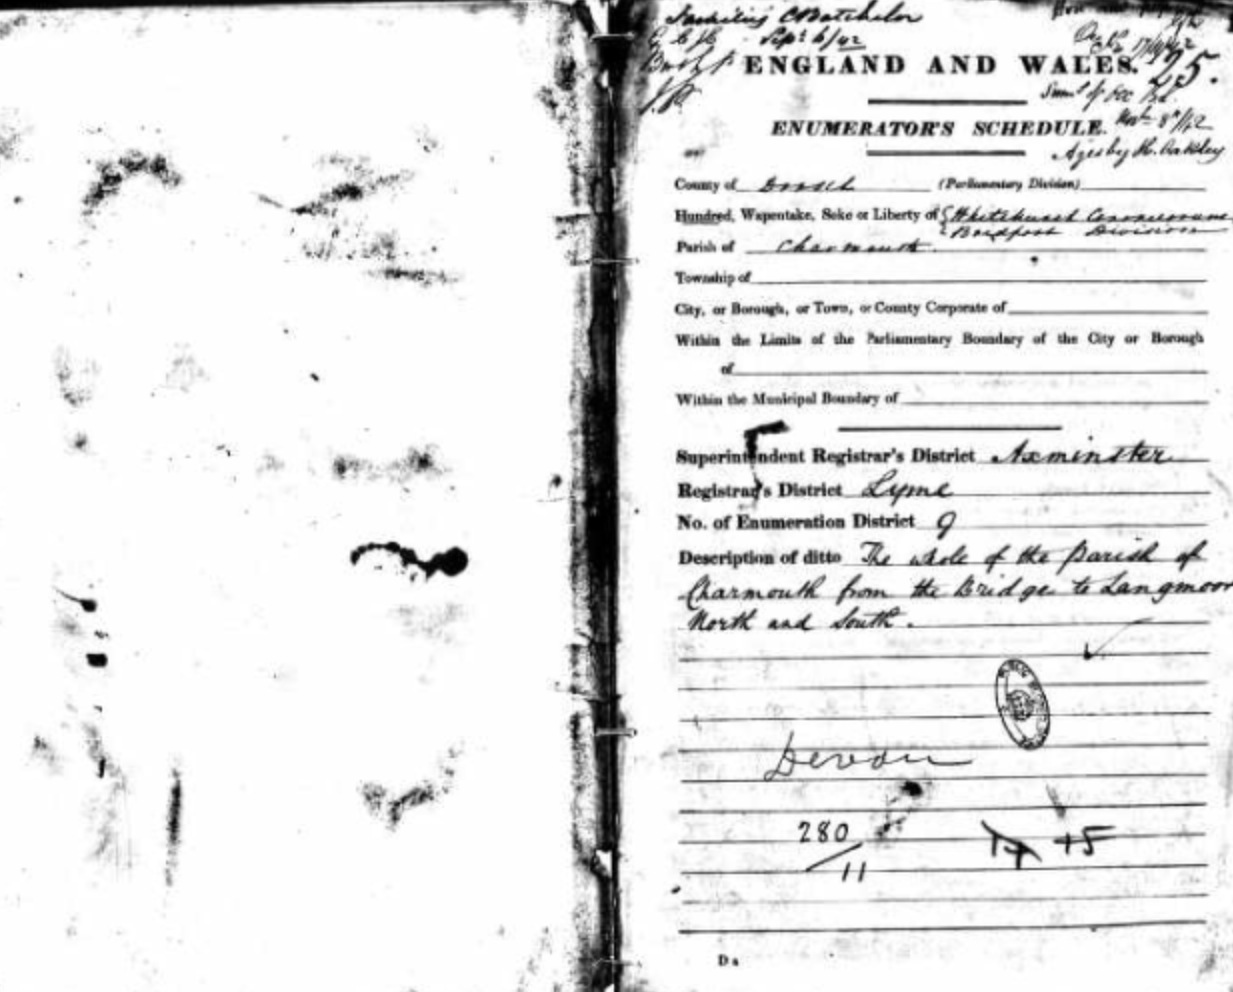 C Batchelor
Sept 6/42
ENGLAND AND WALES. 25.
ENUMERATOR'S SCHEDULE.
Ages by H. Oakley
County of Dorset (Parliamentary Division)
Hundred, Wapentake, Soke or Liberty of Whitchurch Canonicorum
Bridport Division
Parish of Charmouth.
Township of
City, or Borough, or Town, or County Corporate of
Within the Limits of the Parliamentary Boundary of the City or Borough
of
Within the Municipal Boundary of
Superintendent Registrar's District Axminster
Registrar's District Lyme
No. of Enumeration District 9
Description of ditto The whole of the Parish of
Charmouth from the Bridge to Langmoor
North and South.
Devon
280
/11
14 15
D a